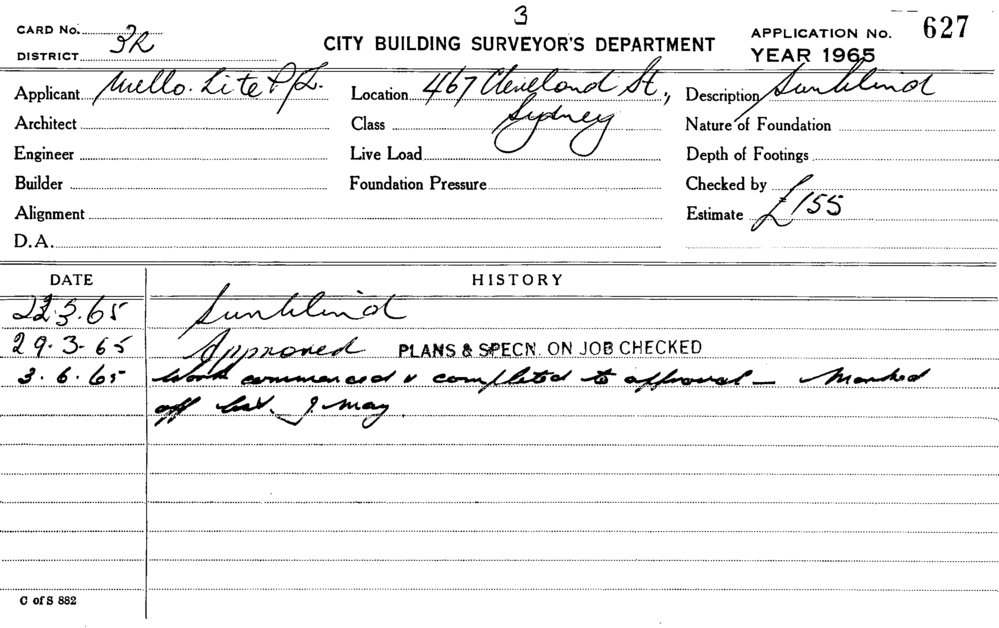 3
CARD No. 627
DISTRICT 3R CITY BUILDING SURVEYOR'S DEPARTMENT APPLICATION No.
YEAR 1965
Applicant Mello. Lite P/L. Location 467 Cleveland St., Description Sunblind
Architect Class Sydney Nature of Foundation
Engineer Live Load Depth of Footings
Builder Foundation Pressure Checked by
Alignment Estimate £155
D.A.
DATE HISTORY
22.3.65 Sunblind
29.3.65 Approved PLANS & SPECN. ON JOB CHECKED
3.6.65 Work commenced & completed to approval — Marked
off list. J. May.
C of S 882